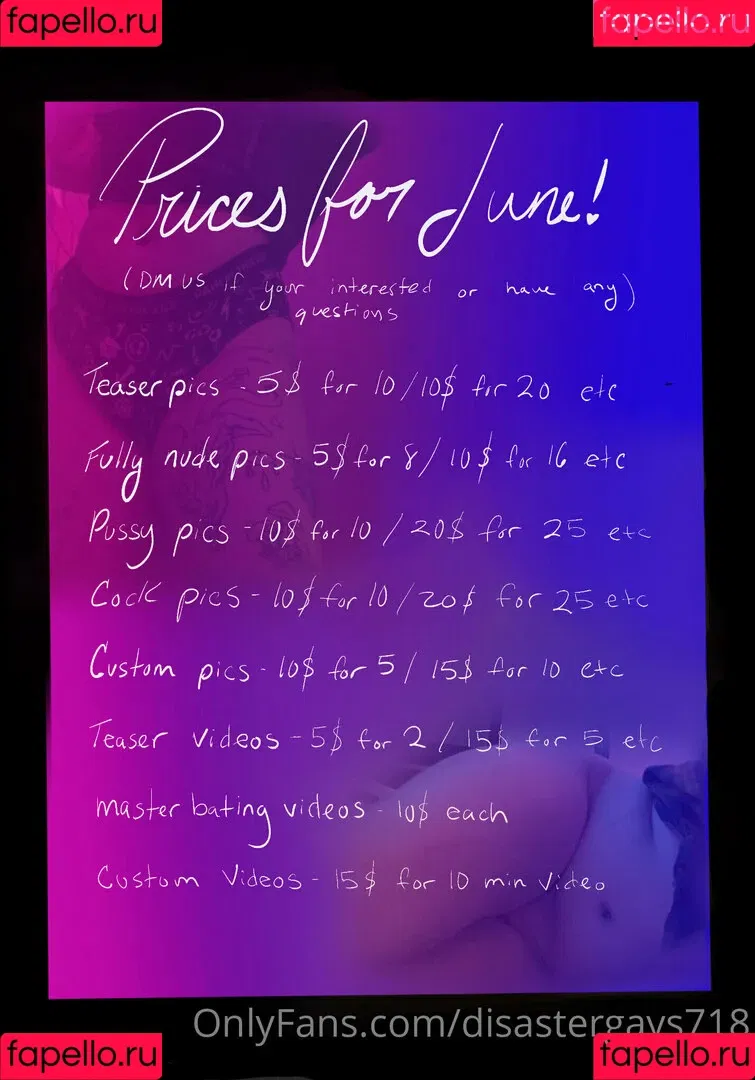 fapello.ru fapello.ru
Prices for June!
(DM us if your interested or have any)
questions
Teaser pics - 5$ for 10/10$ for 20 etc
Fully nude pics - 5$ for 8/10$ for 16 etc
Pussy pics - 10$ for 10/20$ for 25 etc
Cock pics - 10$ for 10/20$ for 25 etc
Custom pics - 10$ for 5/15$ for 10 etc
Teaser videos - 5$ for 2/15$ for 5 etc
master bating videos - 10$ each
Custom Videos - 15$ for 10 min video
OnlyFans.com/disastergays718
fapello.ru fapello.ru